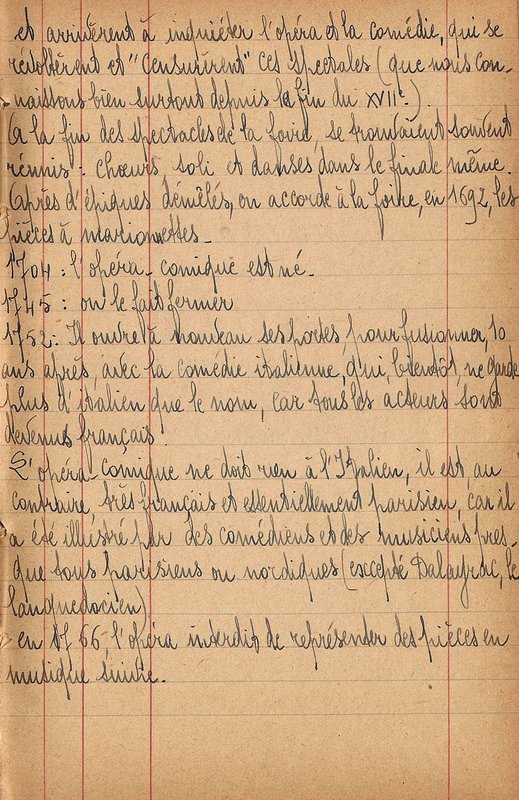 et arrivèrent à inquiéter l'opéra et la comédie, qui se
révoltèrent et "censurèrent" ces spectales (que nous con-
naissons bien surtout depuis la fin du XVIIe.)
(a la fin des spectacles de la foire, se trouvaient souvent
réunis : chœurs, soli et danses, dans le finale même.
(après d'épiques démêlés, on accorde à la foire, en 1692, les
pièces à marionnettes.
1704 : l'opéra-comique est né.
1745 : on le fait fermer
1752 : Il ouvre à nouveau ses portes, pour fusionner, 10
ans après, avec la comédie italienne, qui, bientôt, ne garde
plus d'italien que le nom, car tous les acteurs sont
devenus français.
L'opéra-comique ne doit rien à l'Italien, il est au
contraire très français et essentiellement parisien, car il
a été illustré par des comédiens et des musiciens pres-
que tous parisiens ou nordiques (excepté Dalayrac, le
languedocien)
en 1766, l'opéra interdit de représenter des pièces en
musique suivie.